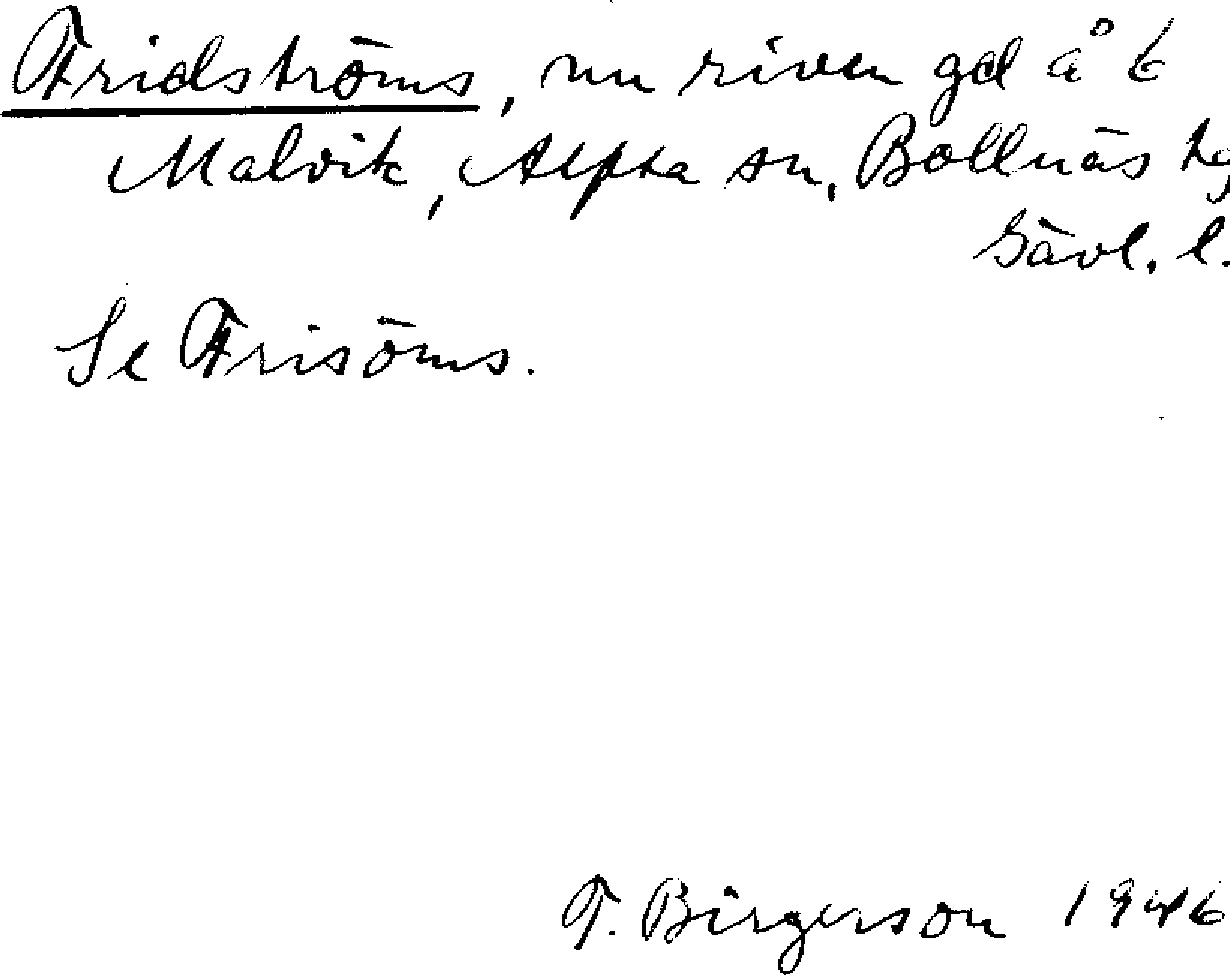 Fridströms, nu riven gd å 6
Malvik, Alfta sn, Bollnäs tg
Gävl. l.
Se Frisöms.
T. Birgerson 1946